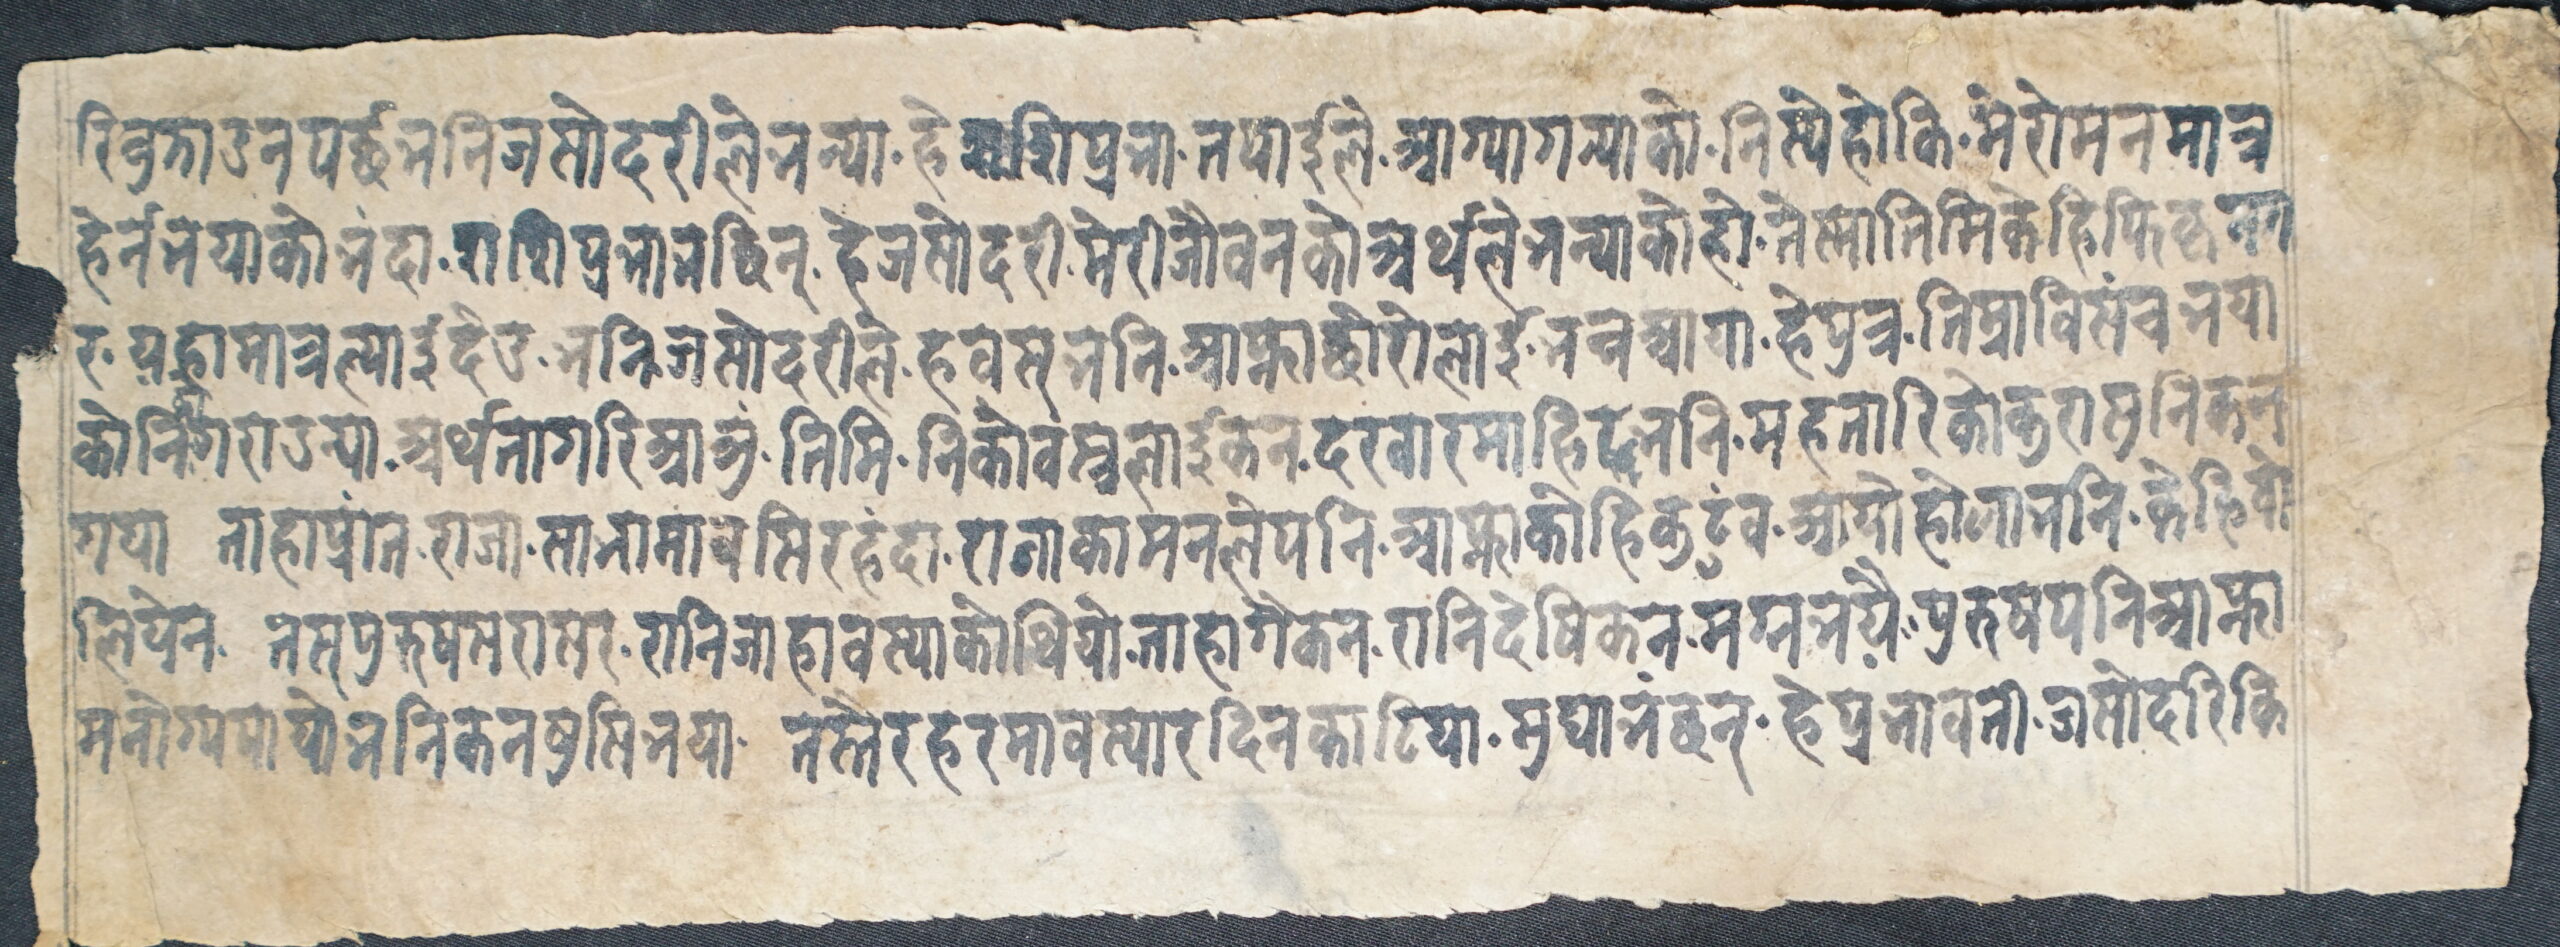 रि वुझाउन पर्छ भनि जसोदरीले भन्या. हे राशिप्रभा. तपाईले. आग्या गन्याको. निस्चे हो कि. मेरो मन मात्र
हेर्न भयाको भंदा. राशिप्रभा भन्छिन्. हे जसोदरी. मेरी जौवनको अर्थले भन्याको हो. तेस्मा तिमि केहि फिक्रु नग
र. यहा मात्र ल्याई देउ. भनि जसोदरीले. हवस् भनि. आफ्ना छोरोलाई. भन्न आया. हे पुत्र. तिम्रा विसंच भया
को निगराउन्या. अर्थ ता गरि आञे. तिमि. निको वस्त्र लाईकन. दरवारमा हिड भनि. महतारिको कुरा सुनिकन
गया ताहा प्रांत. राजा. सातामा वसिरहंदा. राजाका मनले पनि. आफ्ना कोहि कुटुंव. आयो होला भनि. केहि वो
लियेन. तस् पुरुष सरासर. रानि जाहा वस्याको थियो. ताहा गैकन. रानि देषिकन. मग्न भयै. पुरुष पनि आफ्ना
मनोग्य पायो भनिकन षुसि भया. तस्तै रहरमा वस्यार दिन काटिया. मुघा भंछन्. हे प्रभावती. जसोदरि कि